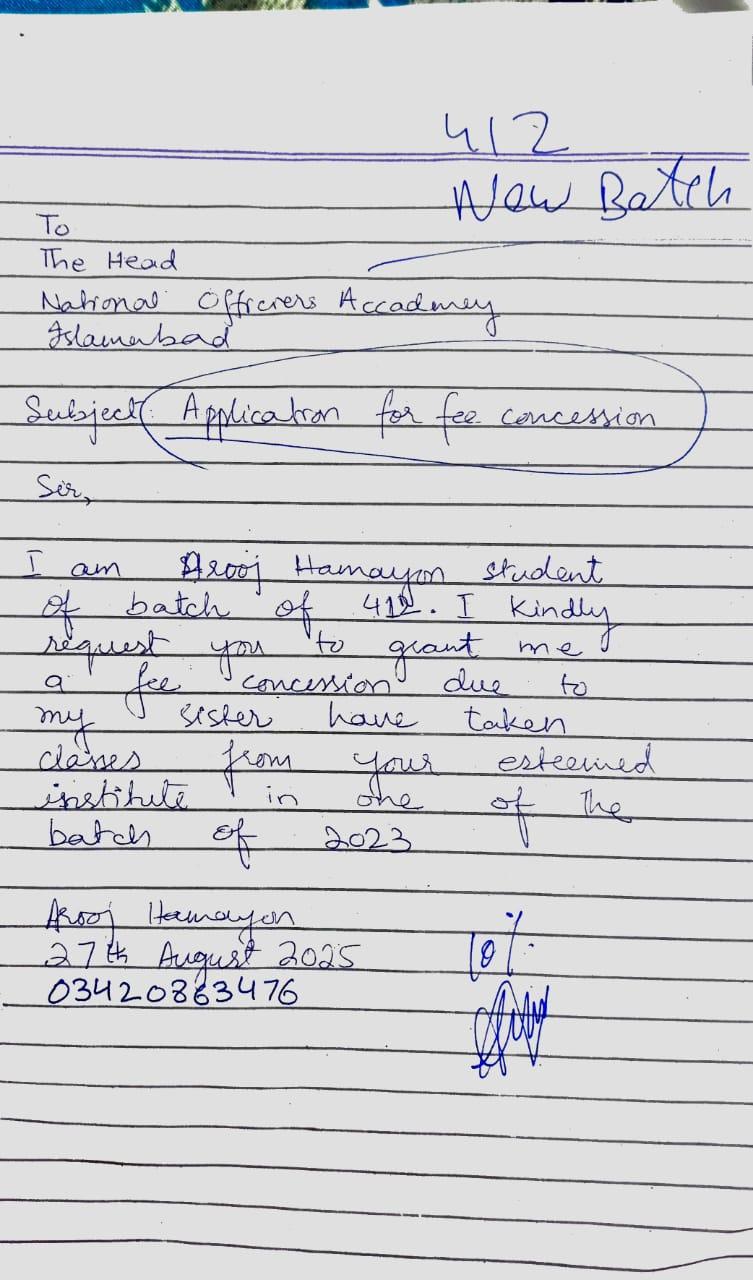 412
New Batch
To
The Head
National Officiers Accadmey
Islamabad
Subject: Application for fee concession
Sir,
I am Arooj Hamayon student
of batch of 412. I kindly
request you to grant me
a fee concession due to
my sister have taken
classes from your esteemed
institute in one of the
batch of 2023
Arooj Hamayon
27th August 2025
03420863476
10%